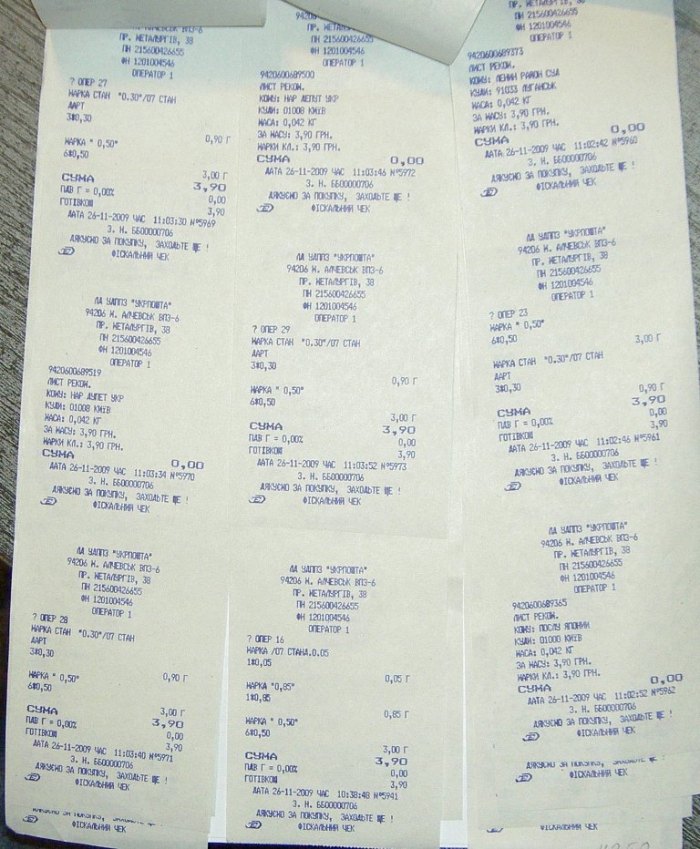 ЛА УАЛЧЕВСЬК ВПЗ-6
ПР. МЕТАЛУРГІВ, 38
ПН 215600426655
ФН 1201004546
ОПЕРАТОР 1
? ОПЕР 27
МАРКА СТАН "0.30"/07 СТАН
ДАРТ
3*0,30
0,90 Г
МАРКА " 0,50"
6*0,50
3,00 Г
СУМА 3,90
ПДВ Г = 0,00% 0,00
ГОТІВКОЮ 3,90
ДАТА 26-11-2009 ЧАС 11:03:30 №5969
З. Н. ББ00000706
ДЯКУЄМО ЗА ПОКУПКУ, ЗАХОДЬТЕ ЩЕ !
ФІСКАЛЬНИЙ ЧЕК
ЛД УДППЗ "УКРПОШТА"
94206 М. АЛЧЕВСЬК ВПЗ-6
ПР. МЕТАЛУРГІВ, 38
ПН 215600426655
ФН 1201004546
ОПЕРАТОР 1
9420600689519
ЛИСТ РЕКОМ.
КОМУ: НАР ДЕПЕТ УКР
КУДИ: 01008 КИЇВ
МАСА: 0,042 КГ
ЗА МАСУ: 3,90 ГРН.
МАРКИ КЛ.: 3,90 ГРН.
СУМА 0,00
ДАТА 26-11-2009 ЧАС 11:03:34 №5970
З. Н. ББ00000706
ДЯКУЄМО ЗА ПОКУПКУ, ЗАХОДЬТЕ ЩЕ !
ФІСКАЛЬНИЙ ЧЕК
ЛД УДППЗ "УКРПОШТА"
94206 М. АЛЧЕВСЬК ВПЗ-6
ПР. МЕТАЛУРГІВ, 38
ПН 215600426655
ФН 1201004546
ОПЕРАТОР 1
? ОПЕР 28
МАРКА СТАН "0.30"/07 СТАН
ДАРТ
3*0,30
0,90 Г
МАРКА " 0,50"
6*0,50
3,00 Г
СУМА 3,90
ПДВ Г = 0,00% 0,00
ГОТІВКОЮ 3,90
ДАТА 26-11-2009 ЧАС 11:03:40 №5971
З. Н. ББ00000706
ДЯКУЄМО ЗА ПОКУПКУ, ЗАХОДЬТЕ ЩЕ !
ФІСКАЛЬНИЙ ЧЕК
ФІСКАЛЬНИЙ ЧЕК
9420
ПР. МЕТАЛУРГІВ, 38
ПН 215600426655
ФН 1201004546
ОПЕРАТОР 1
9420600689500
ЛИСТ РЕКОМ.
КОМУ: НАР ДЕПУТ УКР
КУДИ: 01008 КИЇВ
МАСА: 0,042 КГ
ЗА МАСУ: 3,90 ГРН.
МАРКИ КЛ.: 3,90 ГРН.
СУМА 0,00
ДАТА 26-11-2009 ЧАС 11:03:46 №5972
З. Н. ББ00000706
ДЯКУЄМО ЗА ПОКУПКУ, ЗАХОДЬТЕ ЩЕ !
ФІСКАЛЬНИЙ ЧЕК
ЛД УДППЗ "УКРПОШТА"
94206 М. АЛЧЕВСЬК ВПЗ-6
ПР. МЕТАЛУРГІВ, 38
ПН 215600426655
ФН 1201004546
ОПЕРАТОР 1
? ОПЕР 29
МАРКА СТАН "0.30"/07 СТАН
ДАРТ
3*0,30
0,90 Г
МАРКА " 0,50"
6*0,50
3,00 Г
СУМА 3,90
ПДВ Г = 0,00% 0,00
ГОТІВКОЮ 3,90
ДАТА 26-11-2009 ЧАС 11:03:52 №5973
З. Н. ББ00000706
ДЯКУЄМО ЗА ПОКУПКУ, ЗАХОДЬТЕ ЩЕ !
ФІСКАЛЬНИЙ ЧЕК
ЛД УДППЗ "УКРПОШТА"
94206 М. АЛЧЕВСЬК ВПЗ-6
ПР. МЕТАЛУРГІВ, 38
ПН 215600426655
ФН 1201004546
ОПЕРАТОР 1
? ОПЕР 16
МАРКА /07 СТАНД.0.05
1*0,05
0,05 Г
МАРКА "0,85"
1*0,85
0,85 Г
МАРКА " 0,50"
6*0,50
3,00 Г
СУМА 3,90
ПДВ Г = 0,00% 0,00
ГОТІВКОЮ 3,90
ДАТА 26-11-2009 ЧАС 10:38:48 №5941
З. Н. ББ00000706
ДЯКУЄМО ЗА ПОКУПКУ, ЗАХОДЬТЕ ЩЕ !
ФІСКАЛЬНИЙ ЧЕК
ПР. МЕТАЛУРГІВ, 38
ПН 215600426655
ФН 1201004546
ОПЕРАТОР 1
9420600689373
ЛИСТ РЕКОМ.
КОМУ: ЛЕНИН РАЙОН СУД
КУДИ: 91033 ЛУГАНСЬК
МАСА: 0,042 КГ
ЗА МАСУ: 3,90 ГРН.
МАРКИ КЛ.: 3,90 ГРН.
СУМА 0,00
ДАТА 26-11-2009 ЧАС 11:02:42 №5960
З. Н. ББ00000706
ДЯКУЄМО ЗА ПОКУПКУ, ЗАХОДЬТЕ ЩЕ !
ФІСКАЛЬНИЙ ЧЕК
ЛД УДППЗ "УКРПОШТА"
94206 М. АЛЧЕВСЬК ВПЗ-6
ПР. МЕТАЛУРГІВ, 38
ПН 215600426655
ФН 1201004546
ОПЕРАТОР 1
? ОПЕР 23
МАРКА " 0,50"
6*0,50
3,00 Г
МАРКА СТАН "0.30"/07 СТАН
ДАРТ
3*0,30
0,90 Г
СУМА 3,90
ПДВ Г = 0,00% 0,00
ГОТІВКОЮ 3,90
ДАТА 26-11-2009 ЧАС 11:02:46 №5961
З. Н. ББ00000706
ДЯКУЄМО ЗА ПОКУПКУ, ЗАХОДЬТЕ ЩЕ !
ФІСКАЛЬНИЙ ЧЕК
ЛД УДППЗ "УКРПОШТА"
94206 М. АЛЧЕВСЬК ВПЗ-6
ПР. МЕТАЛУРГІВ, 38
ПН 215600426655
ФН 1201004546
ОПЕРАТОР 1
9420600689365
ЛИСТ РЕКОМ.
КОМУ: ПОСЛУ ЯПОНИИ
КУДИ: 01000 КИЇВ
МАСА: 0,042 КГ
ЗА МАСУ: 3,90 ГРН.
МАРКИ КЛ.: 3,90 ГРН.
СУМА 0,00
ДАТА 26-11-2009 ЧАС 11:02:52 №5962
З. Н. ББ00000706
ДЯКУЄМО ЗА ПОКУПКУ, ЗАХОДЬТЕ ЩЕ !
ФІСКАЛЬНИЙ ЧЕК
ДЯКУЄМО ЗА ПОКУПКУ, ЗАХОДЬТЕ ЩЕ !
ФІСКАЛЬНИЙ ЧЕК
ФІСКАЛЬНИЙ ЧЕК